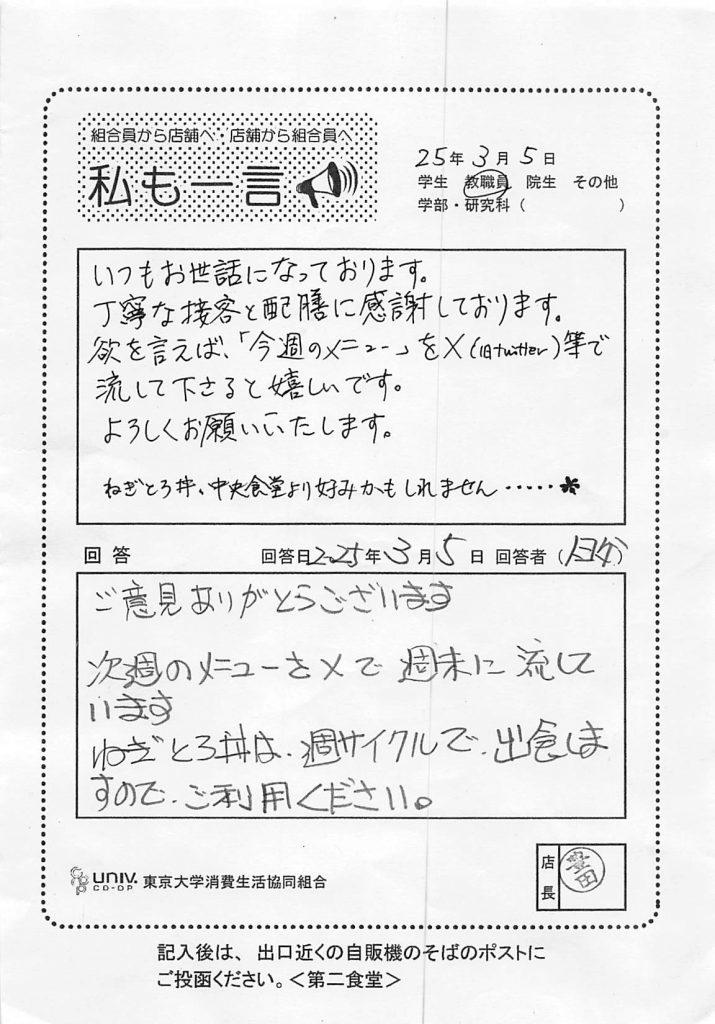 組合員から店舗へ・店舗から組合員へ
私も一言
25年 3月 5日
学生 教職員 院生 その他
学部・研究科（ ）
いつもお世話になっております。
丁寧な接客と配膳に感謝しております。
欲を言えば、「今週のメニュー」をX(旧twitter)等で
流して下さると嬉しいです。
よろしくお願いいたします。
ねぎとろ丼、中央食堂より好みかもしれません……*
回答 回答日2025年3月5日 回答者（トヨダ）
ご意見ありがとうございます
次週のメニューをXで週末に流して
います
ねぎとろ丼は、週サイクルで、出食しま
すので、ご利用ください。
UNIV. CO-OP 東京大学消費生活協同組合
店長 豊田
記入後は、出口近くの自販機のそばのポストに
ご投函ください。＜第二食堂＞